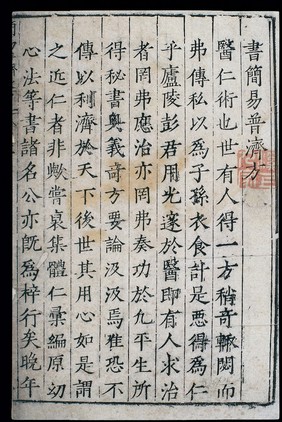 書簡易普濟方
醫仁術也世有人得一方稍奇輙閟而
弗傳私以爲子孫衣食計是惡得爲仁
乎廬陵彭君用光邃於醫即有人求治
者罔弗應治亦罔弗奏功於九平生所
得秘書奧義奇方要論汲汲焉惟恐不
傳以利濟於天下後世其用心如是謂
之近仁者非歟嘗裒集體仁彙編原幼
心法等書諸名公亦旣爲梓行矣晚年